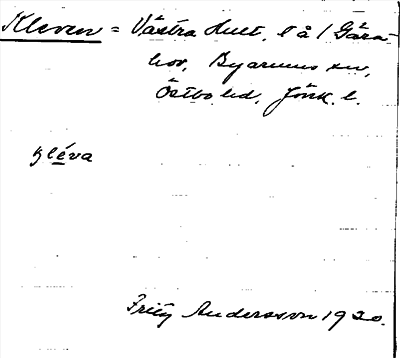 Kleven = Västra Huet, l å / Gåra-
hov, Byarums sn,
Östbo hd, Jönk. l.
kléva
Fritz Andersson 1920.